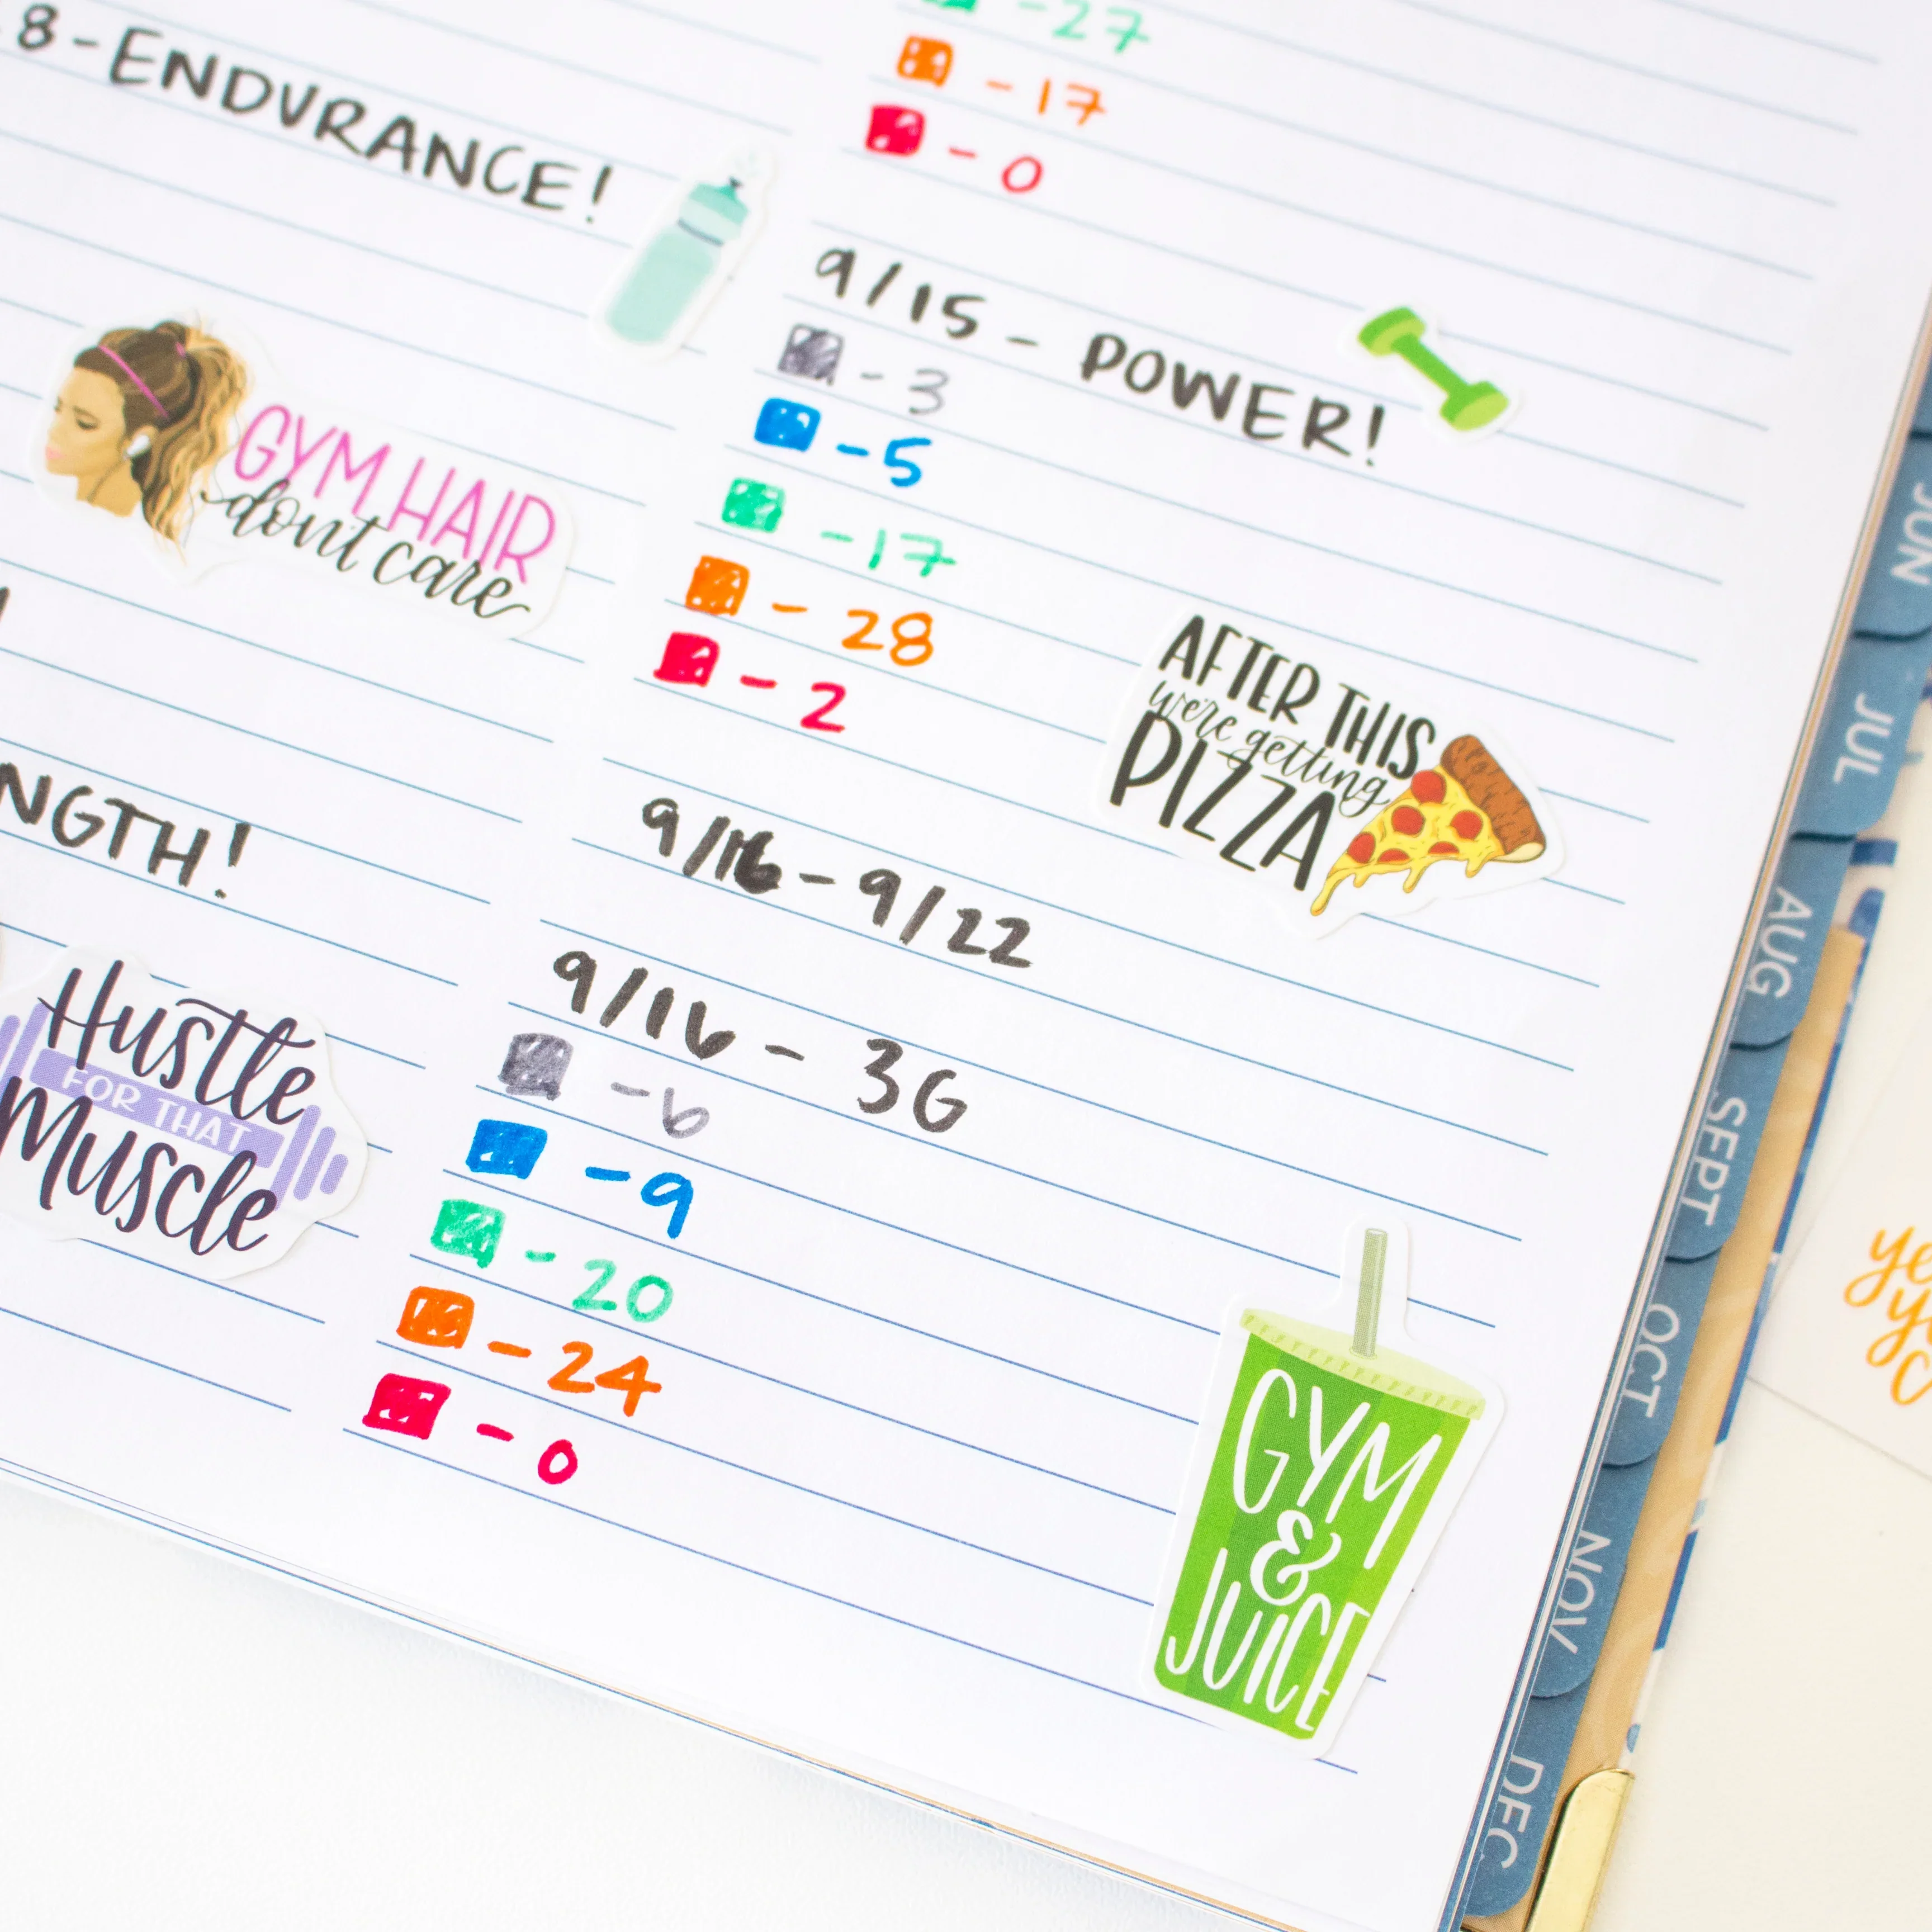 8-ENDURANCE!
GYM HAIR
don't care
NGTH!
Hustle
FOR THAT
Muscle
-27
-17
-0
9/15 - POWER!
-3
-5
-17
-28
-2
AFTER THIS
we're getting
PIZZA
9/16-9/22
9/16 - 3G
-6
-9
-20
-24
-0
GYM
&
JUICE
JUN
JUL
AUG
SEPT
OCT
NOV
DEC